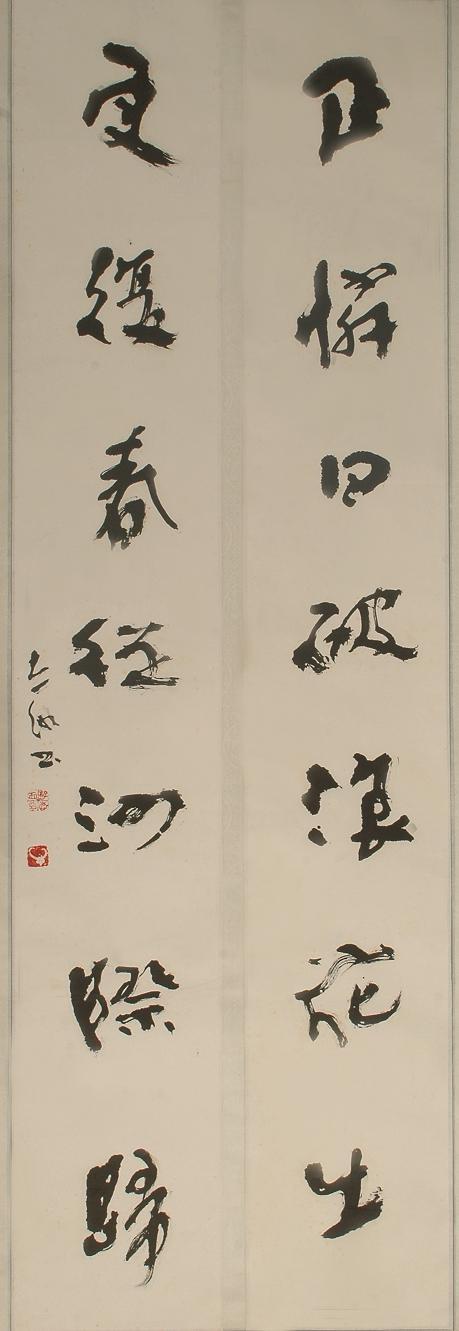 正憐日破浪花出
更復春從沙際歸